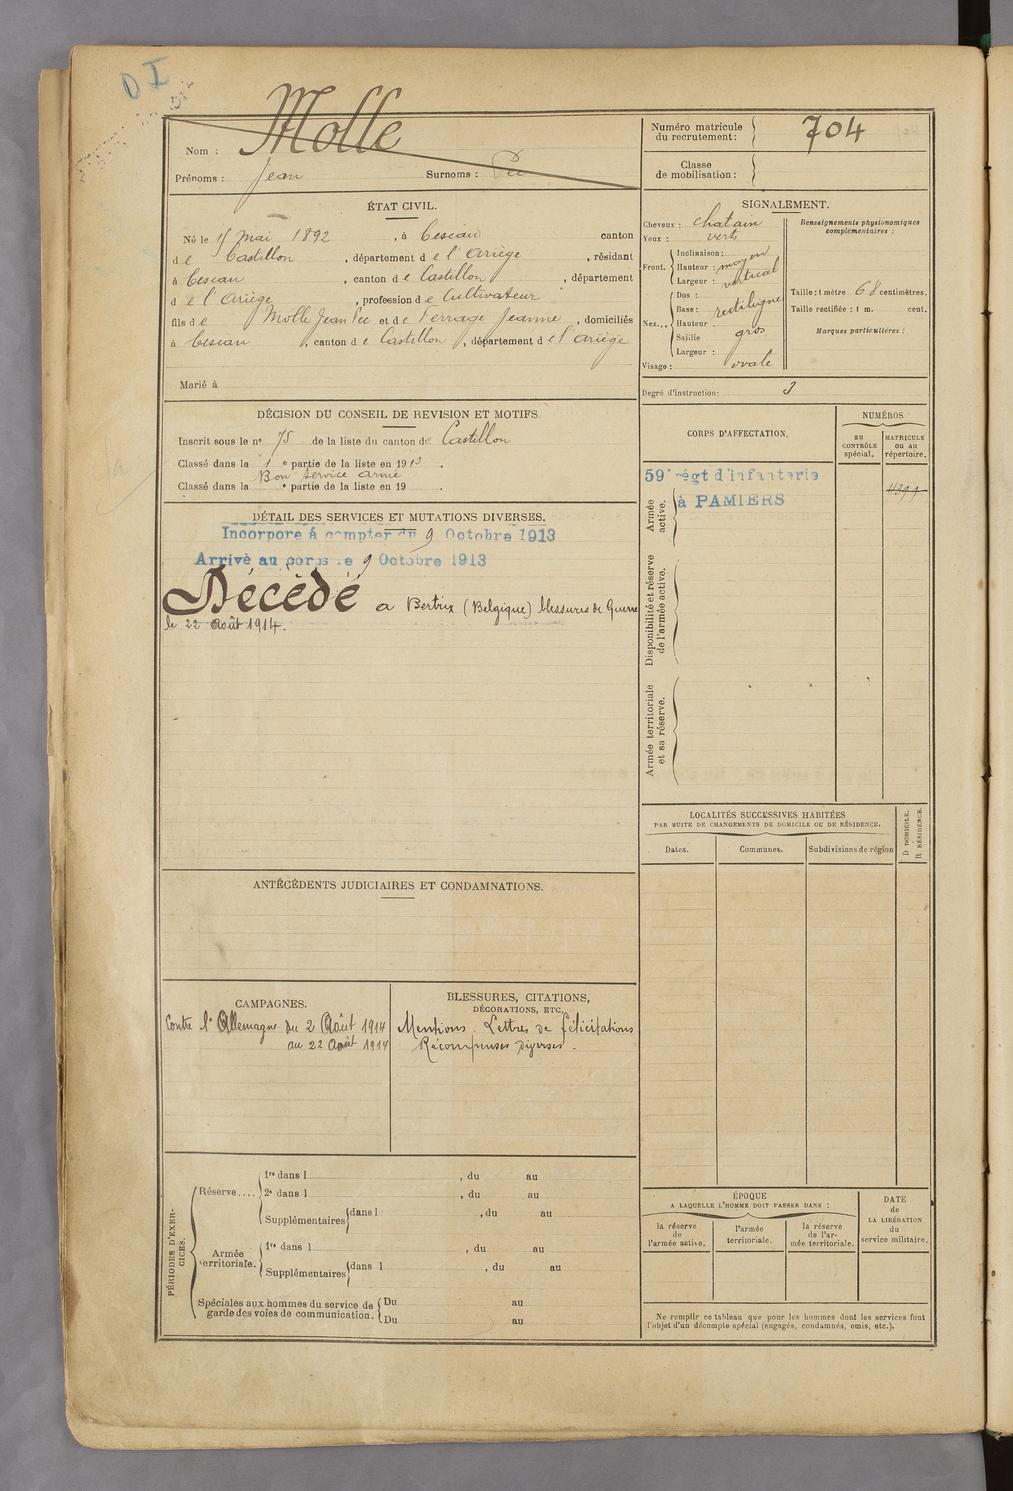 D I
Nom : Molle
Prénoms : Jean Surnoms : Pée
Numéro matricule
du recrutement : 704
Classe
de mobilisation :
ÉTAT CIVIL.
Né le 15 mai 1892, à Cescau canton
de Castillon, département de l'Ariège, résidant
à Cescau, canton de Castillon, département
de l'Ariège, profession de Cultivateur
fils de Molle Jean Pée et de Ferrage Jeanne, domiciliés
à Cescau, canton de Castillon, département de l'Ariège
Marié à
SIGNALEMENT.
Cheveux : chatain
Yeux : verts
Front. Inclinaison :
Hauteur : moyen
Largeur : vertical
Nez... Dos :
Base : rectiligne
Hauteur
Saillie gros
Largeur :
Visage : ovale
Renseignements physionomiques
complémentaires :
Taille : 1 mètre 68 centimètres.
Taille rectifiée : 1 m. cent.
Marques particulières :
Degré d'instruction : 3
DÉCISION DU CONSEIL DE REVISION ET MOTIFS.
Inscrit sous le n° 75 de la liste du canton de Castillon
Classé dans la 1 e partie de la liste en 1913.
Bon service armé
Classé dans la e partie de la liste en 19 .
CORPS D'AFFECTATION.
NUMÉROS
au
CONTRÔLE
spécial.
MATRICULE
ou au
répertoire.
Armée
active.
59e régt d'infanterie
à PAMIERS
Disponibilité et réserve
de l'armée active.
Armée territoriale
et sa réserve.
DÉTAIL DES SERVICES ET MUTATIONS DIVERSES.
Incorporé à compter du 9 Octobre 1913
Arrivé au corps le 9 Octobre 1913
Décédé à Bertrix (Belgique) blessures de Guerre
le 22 Août 1914.
LOCALITÉS SUCCESSIVES HABITÉES
PAR SUITE DE CHANGEMENTS DE DOMICILE OU DE RÉSIDENCE.
Dates. Communes. Subdivisions de région
D DOMICILE.
R RÉSIDENCE.
ANTÉCÉDENTS JUDICIAIRES ET CONDAMNATIONS.
CAMPAGNES.
Contre l'Allemagne du 2 Août 1914
au 22 Août 1914
BLESSURES, CITATIONS,
DÉCORATIONS, ETC.
Mentions. Lettres de félicitations
Récompenses diverses.
PÉRIODES D'EXER-
CICES.
Réserve.... 1re dans l , du au
2e dans l , du au
Supplémentaires dans l , du au
Armée
territoriale. 1re dans l , du au
Supplémentaires dans l , du au
Spéciales aux hommes du service de
garde des voies de communication. Du au
Du au
ÉPOQUE
A LAQUELLE L'HOMME DOIT PASSER DANS :
la réserve
de
l'armée active.
l'armée
territoriale.
la réserve
de l'ar-
mée territoriale.
DATE
de
LA LIBÉRATION
du
service militaire.
Ne remplir ce tableau que pour les hommes dont les services font
l'objet d'un décompte spécial (engagés, condamnés, omis, etc.).